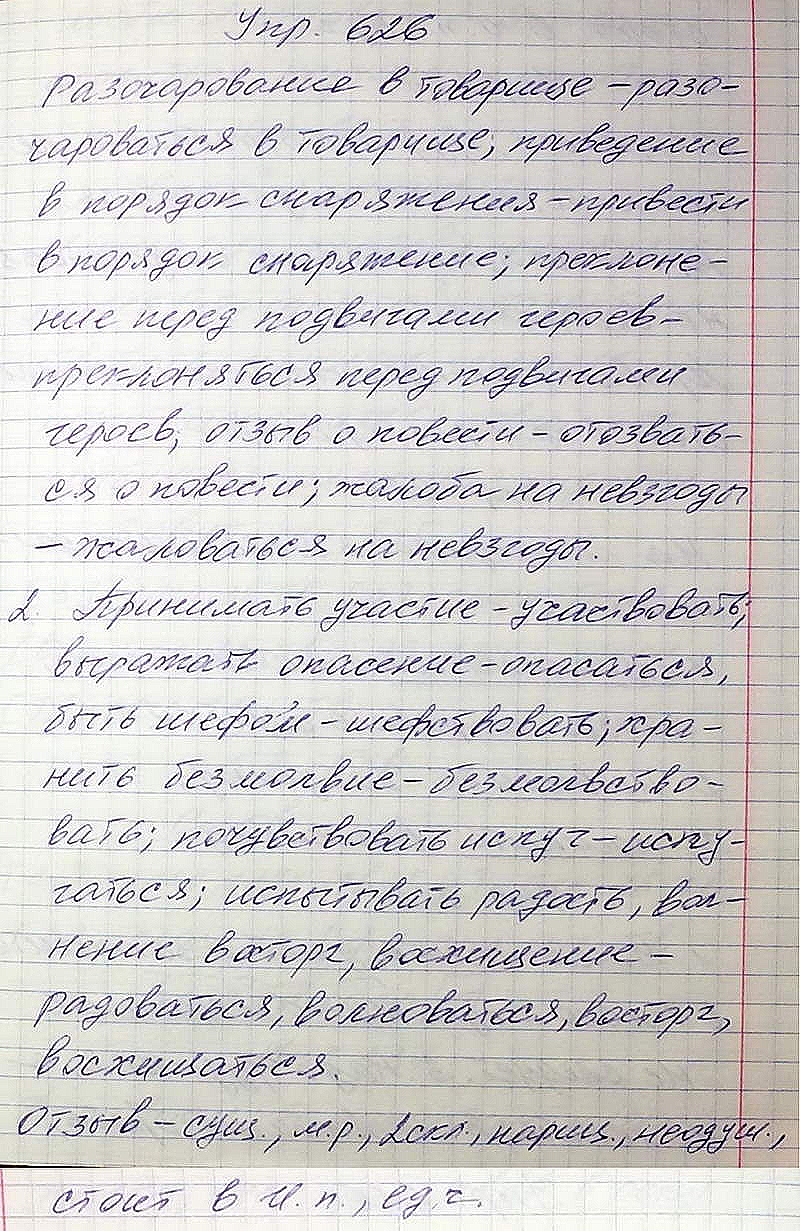 Упр. 626
Разочарование в товарище – разо-
чароваться в товарище; приведение
в порядок снаряжения – привести
в порядок снаряжение; преклоне-
ние перед подвигами героев –
преклоняться перед подвигами
героев; отзыв о повести – отозвать-
ся о повести; жалоба на невзгоды
– жаловаться на невзгоды.
2. Принимать участие – участвовать;
выражать опасение – опасаться,
быть шефом – шефствовать; хра-
нить безмолвие – безмолвство-
вать; почувствовать испуг – испу-
гаться; испытывать радость, вол-
нение восторг, восхищение –
радоваться, волноваться, восторг,
восхищаться.
Отзыв – сущ., м.р., 2скл., нариц., неодуш.,
стоит в И.п., ед.ч.